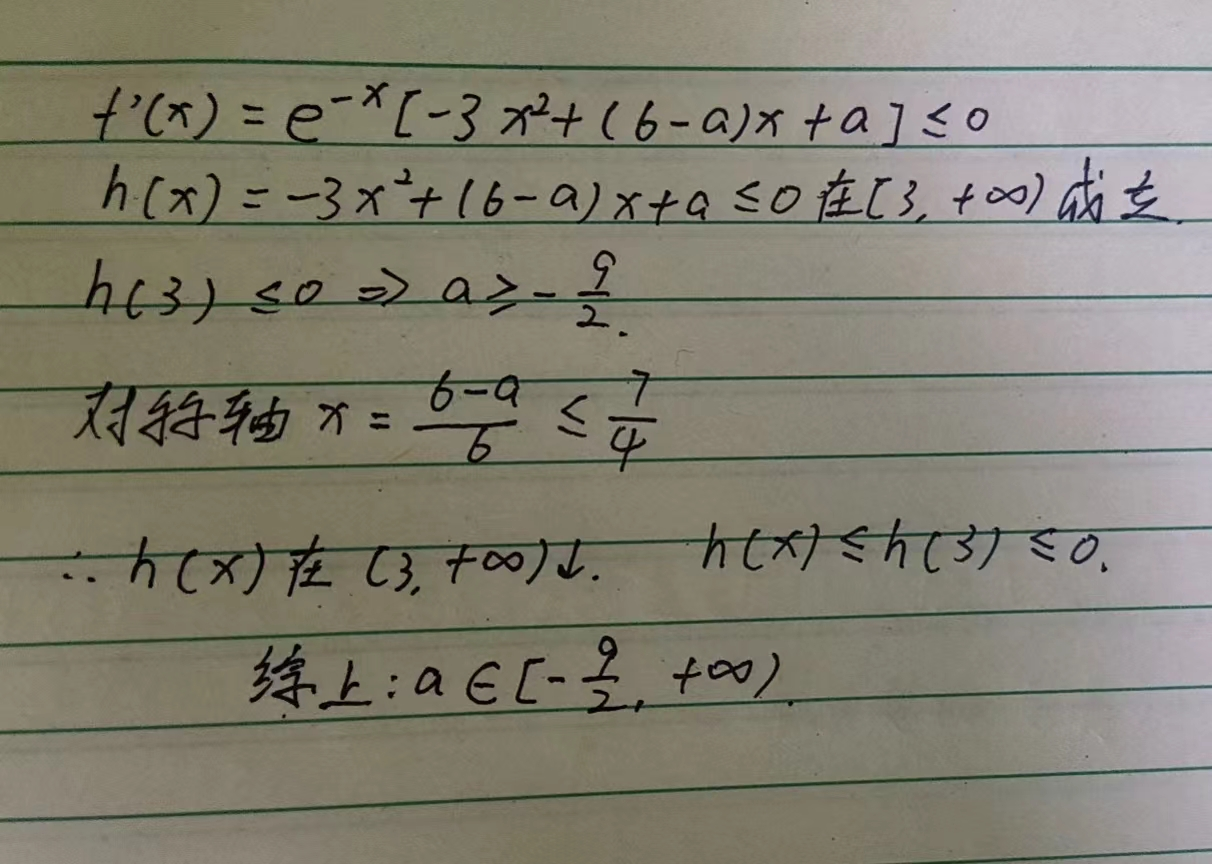 f'(x) = e^{-x}[-3x²+(6-a)x+a] ≤ 0
h(x) = -3x²+(6-a)x+a ≤ 0 在[3, +∞) 成立.
h(3) ≤ 0 ⇒ a ≥ -9/2.
对称轴 x = (6-a)/6 ≤ 7/4
∴ h(x) 在 (3, +∞)↓. h(x) ≤ h(3) ≤ 0.
综上: a ∈ [-9/2, +∞).